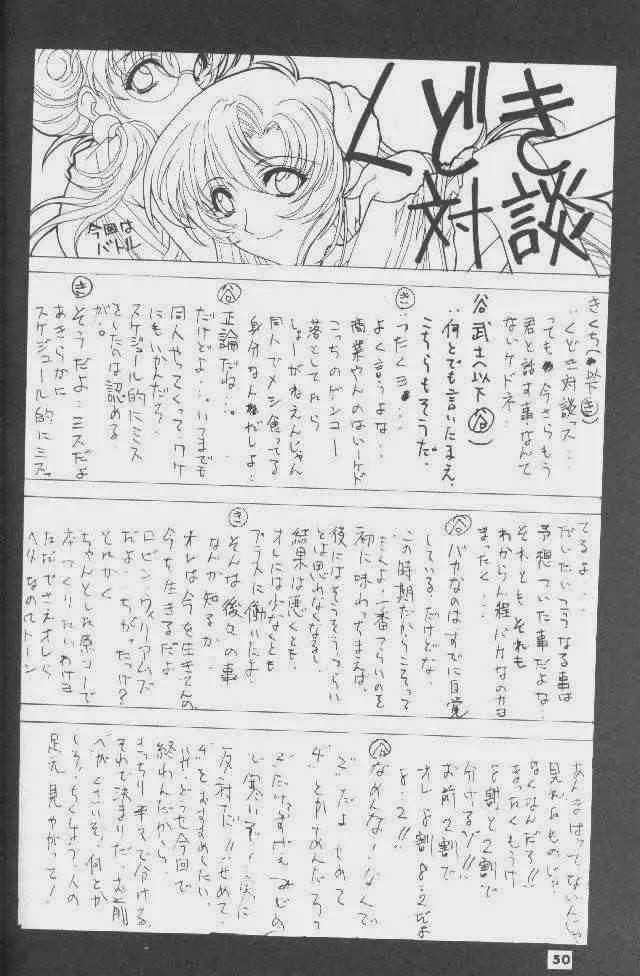 くどき
対談
今回は
バトル
きくち(以下き)
‥くどき対談ス‥
っても今さらもう
君と話す事なんて
ないケドネ‥
谷武士(以下谷)
‥何とでも言いたまえ。
こちらもそうだ。
き
‥ったくヨ‥‥
よく言うよな‥
商業やんのないーケド
こっちのゲンコー
落としてたら
しょーがねえんじゃん
同人でメシ食ってる
身分なんだしよ‥
谷
正論だね‥。
だけどよ‥いつまでも
同人やってくってワケ
にもいかんだろ？
スケジュール的にミス
をしたのは認める
が。
き
そうだよ‥ミスだよ
あきらかに
スケジュール的にミス。
てるよ‥
だいたいこうなる事は
予想ついた事だよな
それともそれも
わからん程バカなのかョ
まったく‥‥
谷
バカなのはすでに自覚
しているだけどな
この時期だからこそって
一番つらいのを
初に味わっちまえば
後にはそうそうつらい
とは思わなくなるし
結果は悪くとも
オレには少なくとも
プラスに働いたよ
き
そんな後々の事
なんか知るか
オレは今を生きてんの
今を生きるだよ
ロビン・ウィリアムズ
だよ‥ちがったっけ？
とにかく
ちゃんとした原コーで
本つくりたいわけヨ
ただでさえオレら
ヘタなのにトーン
あんまはってないんじゃ
見れたものじゃ
なくなんだろ!!
まったくもうけ
8割と2割で
分けるゾ!!
お前2割で
オレ8割 8・2だよ
8・2!!
谷
なめんな!なんで
だよ せめて
とかてめんだろっ
反対だ!!せめて
をおすすめしたい
いや どうせ今回で
終わんだから
きっちり 半々で分ける
それで決まりだ お前
べがくさいぞ 何とか
しろ!ちくしょう人の
足元見やがって!
50